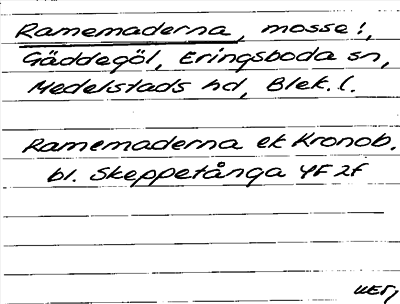 Ramemaderna, mosse!,
Gäddegöl, Eringsboda sn,
Medelstads hd, Blek. l.
Ramemaderna ek Kronob.
bl. Skeppetånga 4F 2f